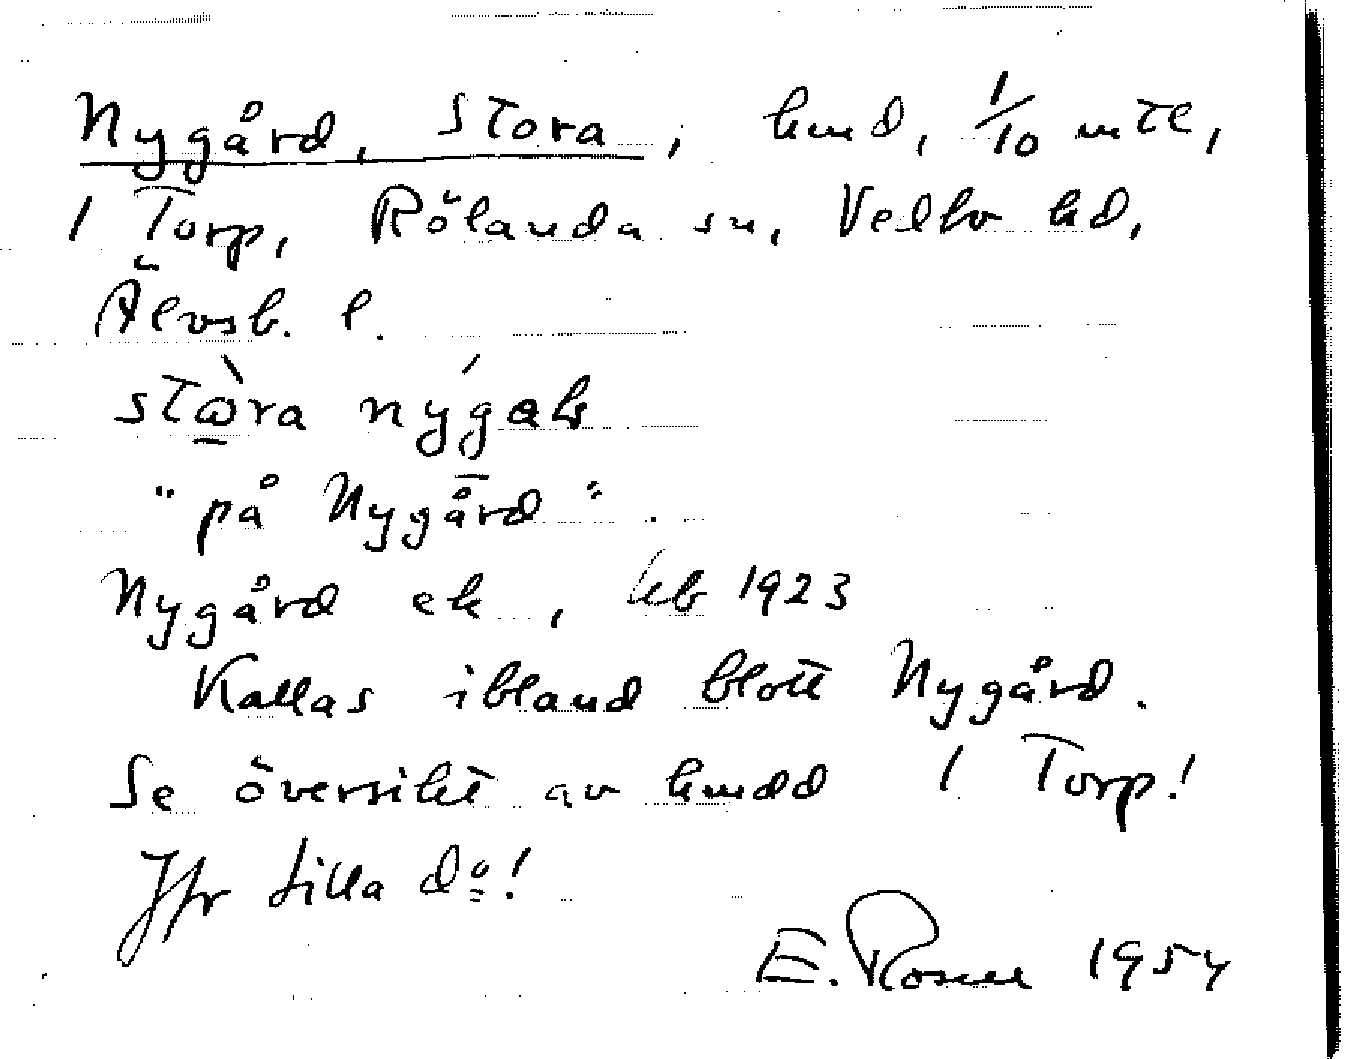 Nygård, Stora, hmd, 1/10 mtl,
1 Torp, Rölanda sn, Vedbo hd,
Älvsb. l.
nýgaɫs
"på Nygård".
Nygård ek, 1923
Kallas ibland blott Nygård.
Se översikt av hmdd 1 Torp!
Jfr Lilla do!
E. Rosell 1954